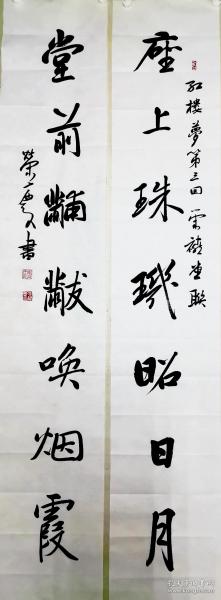 座上珠玑昭日月
红楼梦第三回荣禧堂联
堂前黼黻唤烟霞